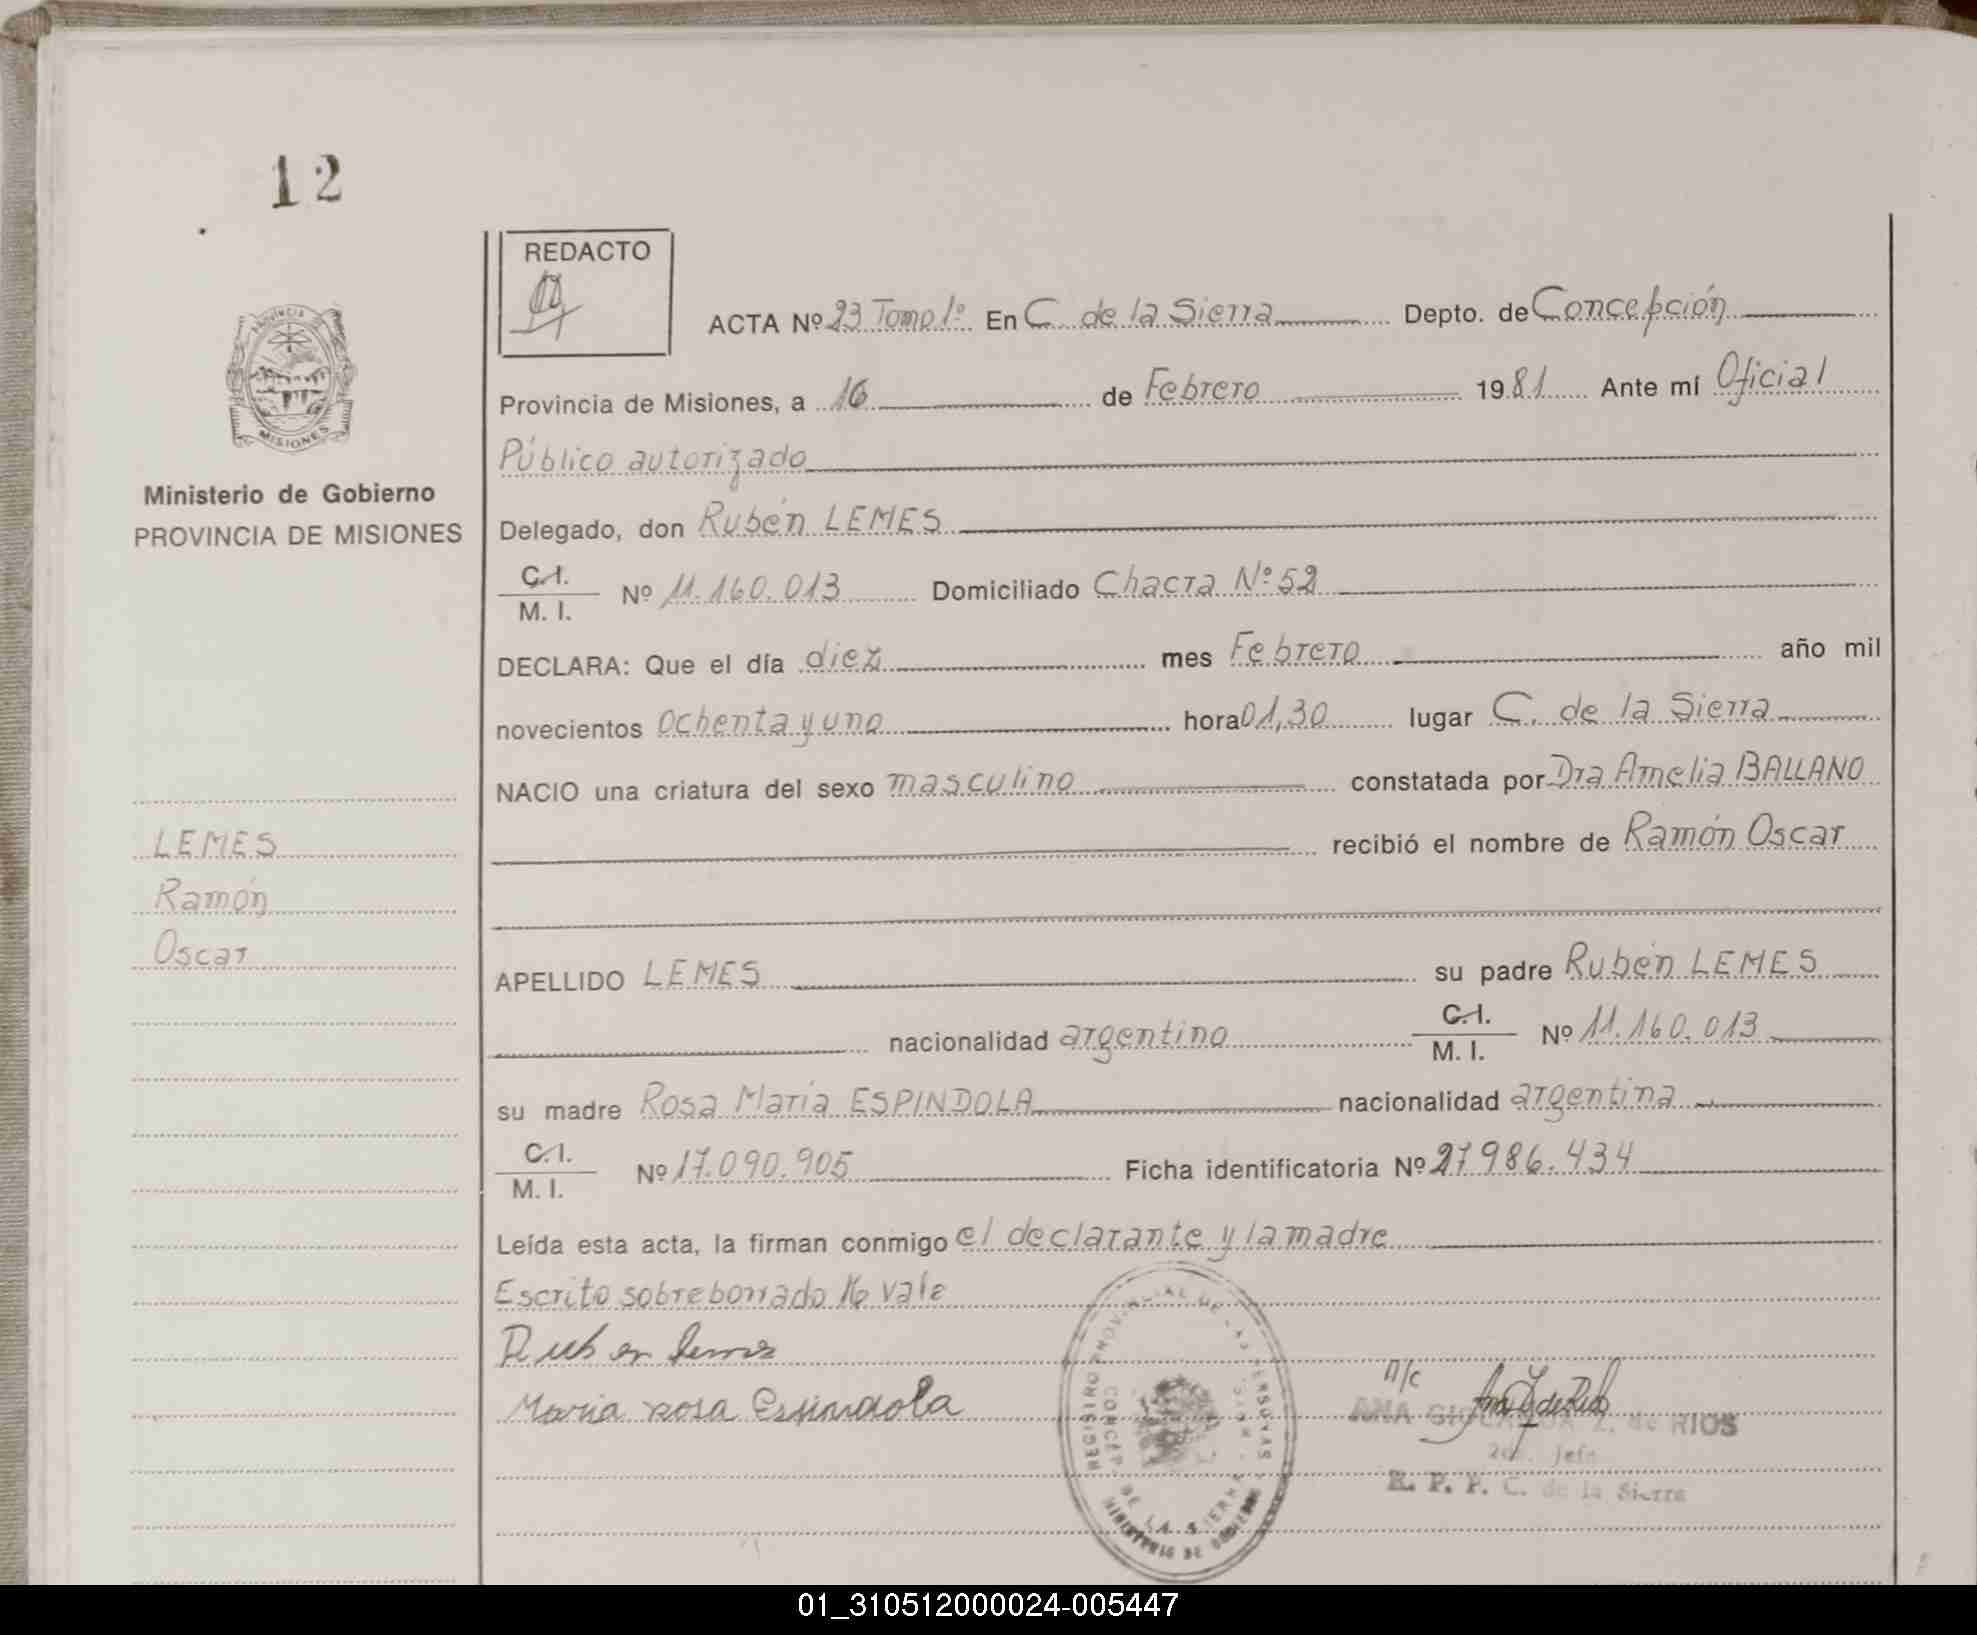 12
REDACTO
ACTA Nº 23 Tomo 1º En C. de la Sierra Depto. de Concepción
PROVINCIA
MISIONES
Provincia de Misiones, a 16 de Febrero 1981 Ante mí Oficial
Público autorizado
Ministerio de Gobierno
PROVINCIA DE MISIONES
Delegado, don Rubén LEMES
C.I.
M. I. Nº 11.160.013 Domiciliado Chacra Nº 52
DECLARA: Que el día diez mes Febrero año mil
novecientos ochenta y uno hora 01,30 lugar C. de la Sierra
NACIO una criatura del sexo masculino constatada por Dra Amelia BALLANO
recibió el nombre de Ramón Oscar
LEMES
Ramón
Oscar
APELLIDO LEMES su padre Rubén LEMES
nacionalidad argentino C.I. M. I. Nº 11.160.013
su madre Rosa María ESPINDOLA nacionalidad argentina
C.I.
M. I. Nº 17.090.905 Ficha identificatoria Nº 27986.434
Leída esta acta, la firman conmigo el declarante y la madre
Escrito sobreborrado 16 vale
Ruben lemes
Maria rosa Espindola
REGISTRO PROVINCIAL DE LAS PERSONAS
CONCEP. DE LA SIERRA
MINISTERIO DE GOBIERNO
ANA de RIOS
2do. Jefe
R. P. P. C. de la Sierra
01_310512000024-005447